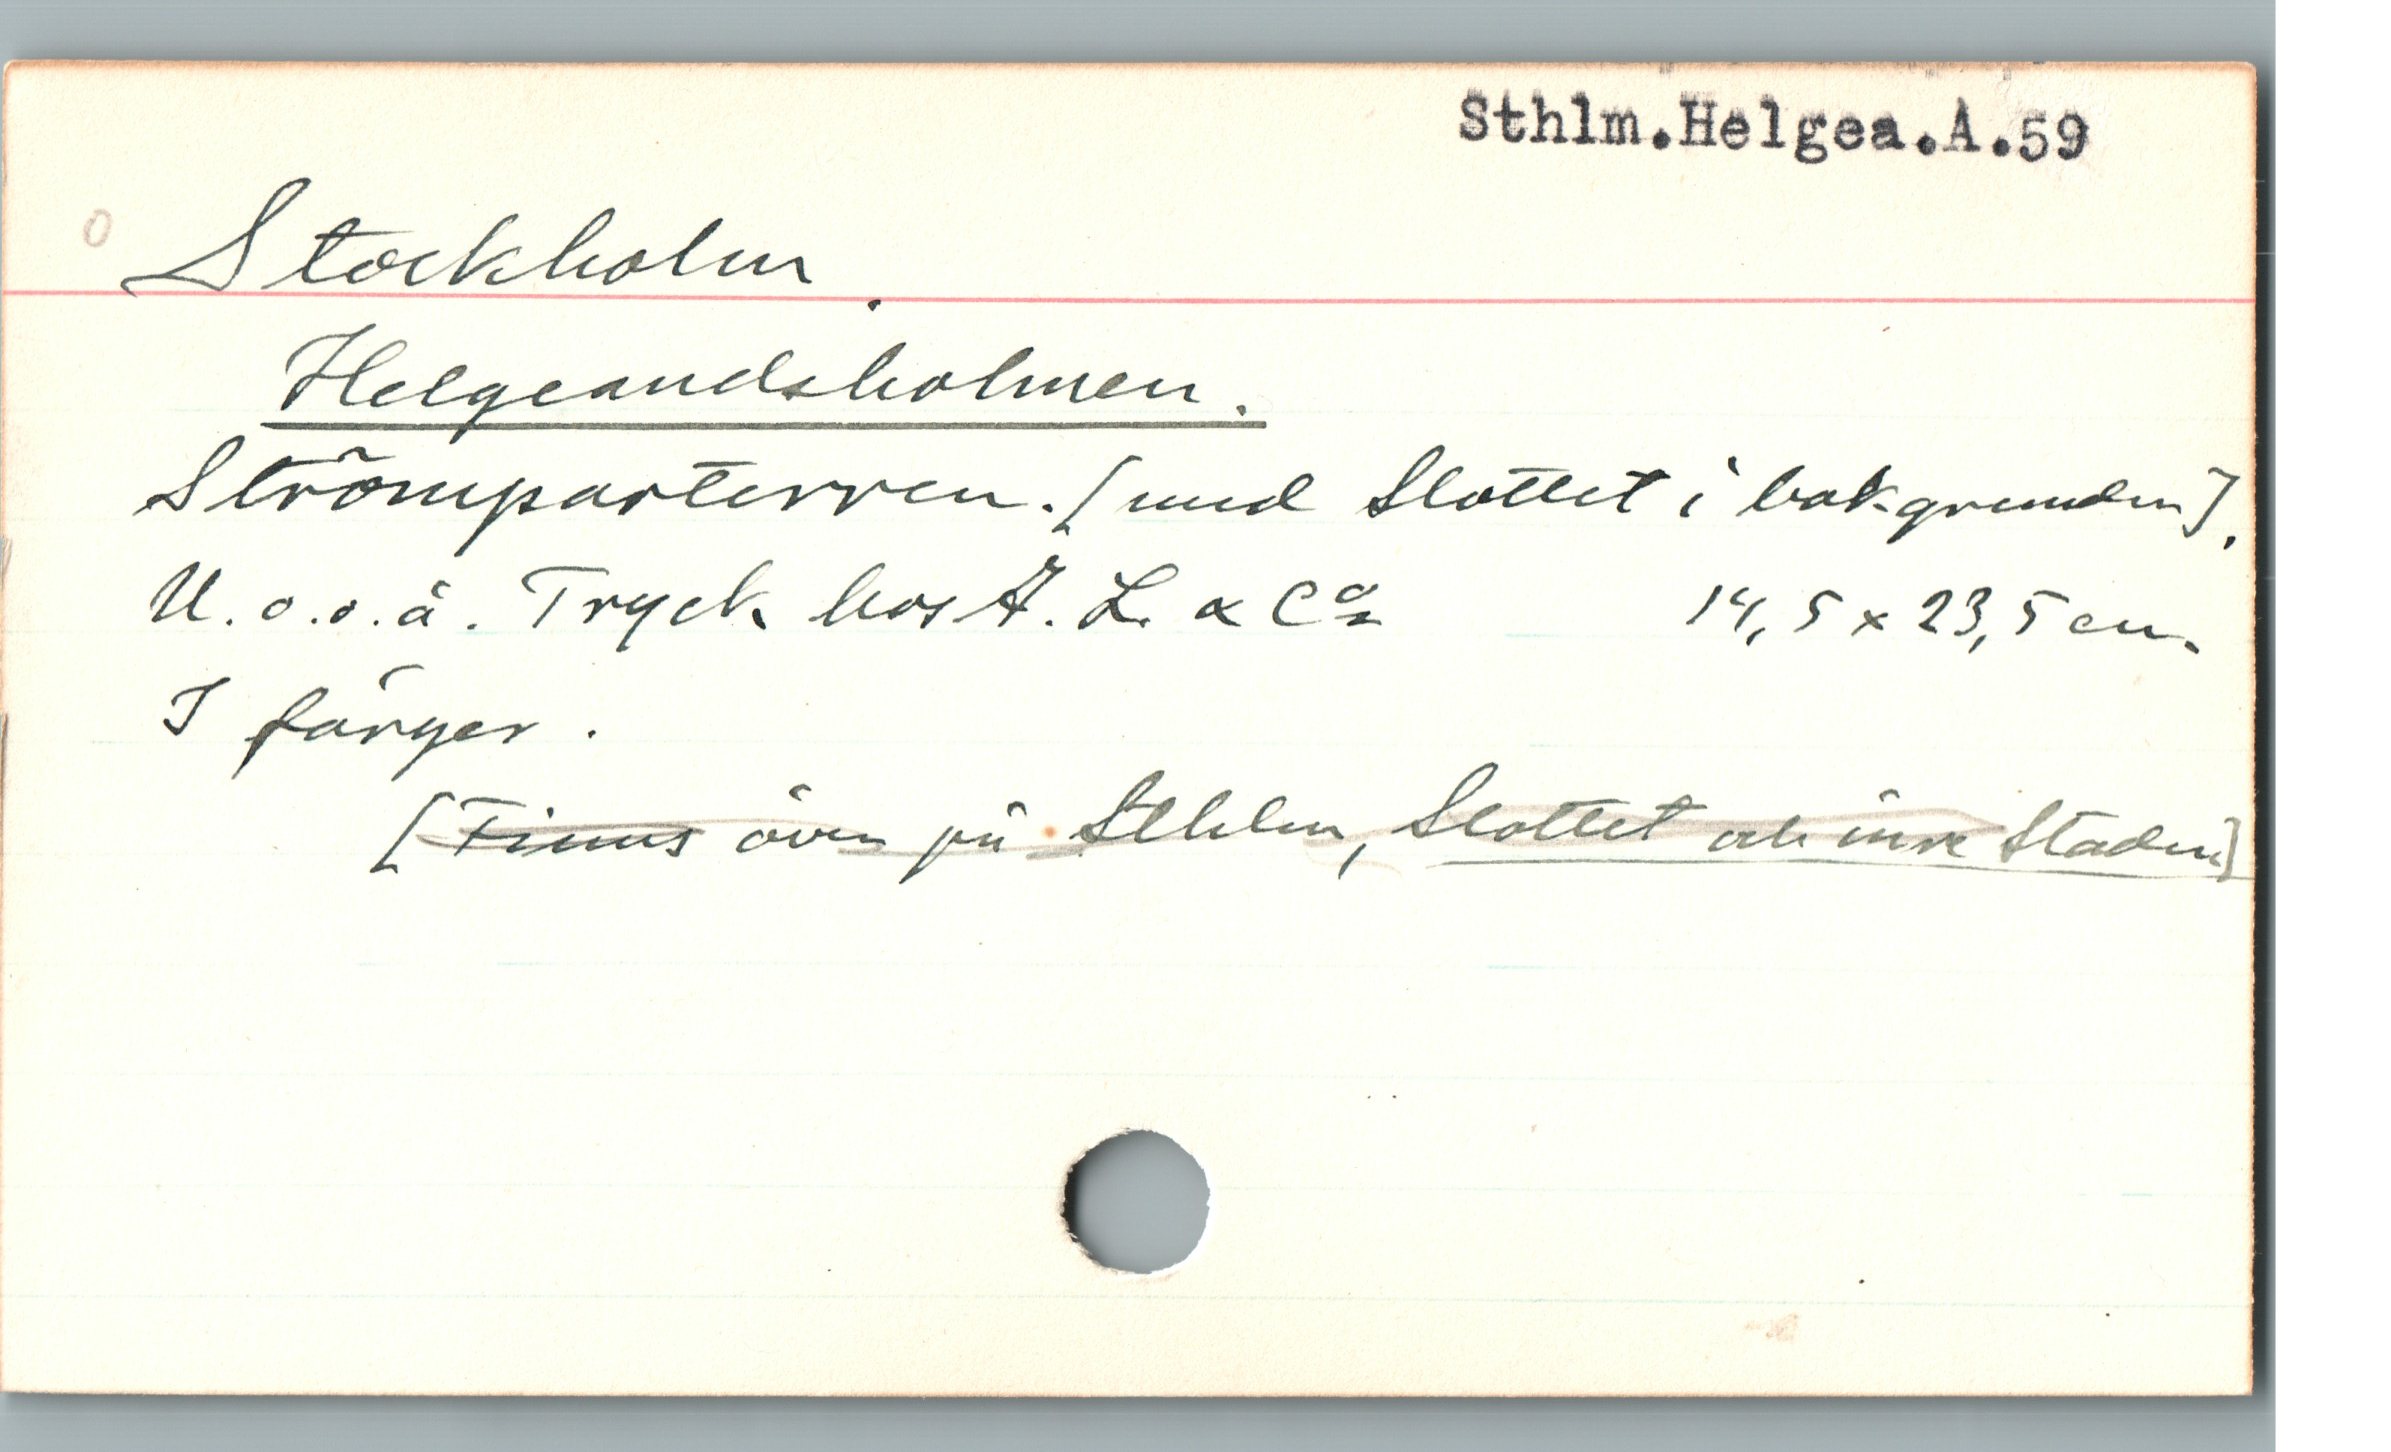 Sthlm.Helgea.A.59
o
Stockholm.
Helgeandsholmen.
Strömparterren. [med Slottet i bakgrunden].
U. o. o. å. Tryck hos A. L. & Co 14,5 x 23,5 cm.
I färger.
[Finns även på Sthlm, Slottet och inre Staden]